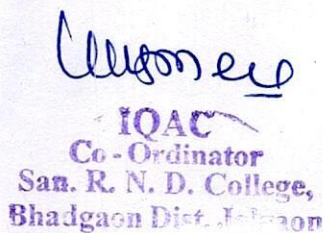 IQAC
Co-Ordinator
San. R. N. D. College,
Bhadgaon Dist. Jalgaon